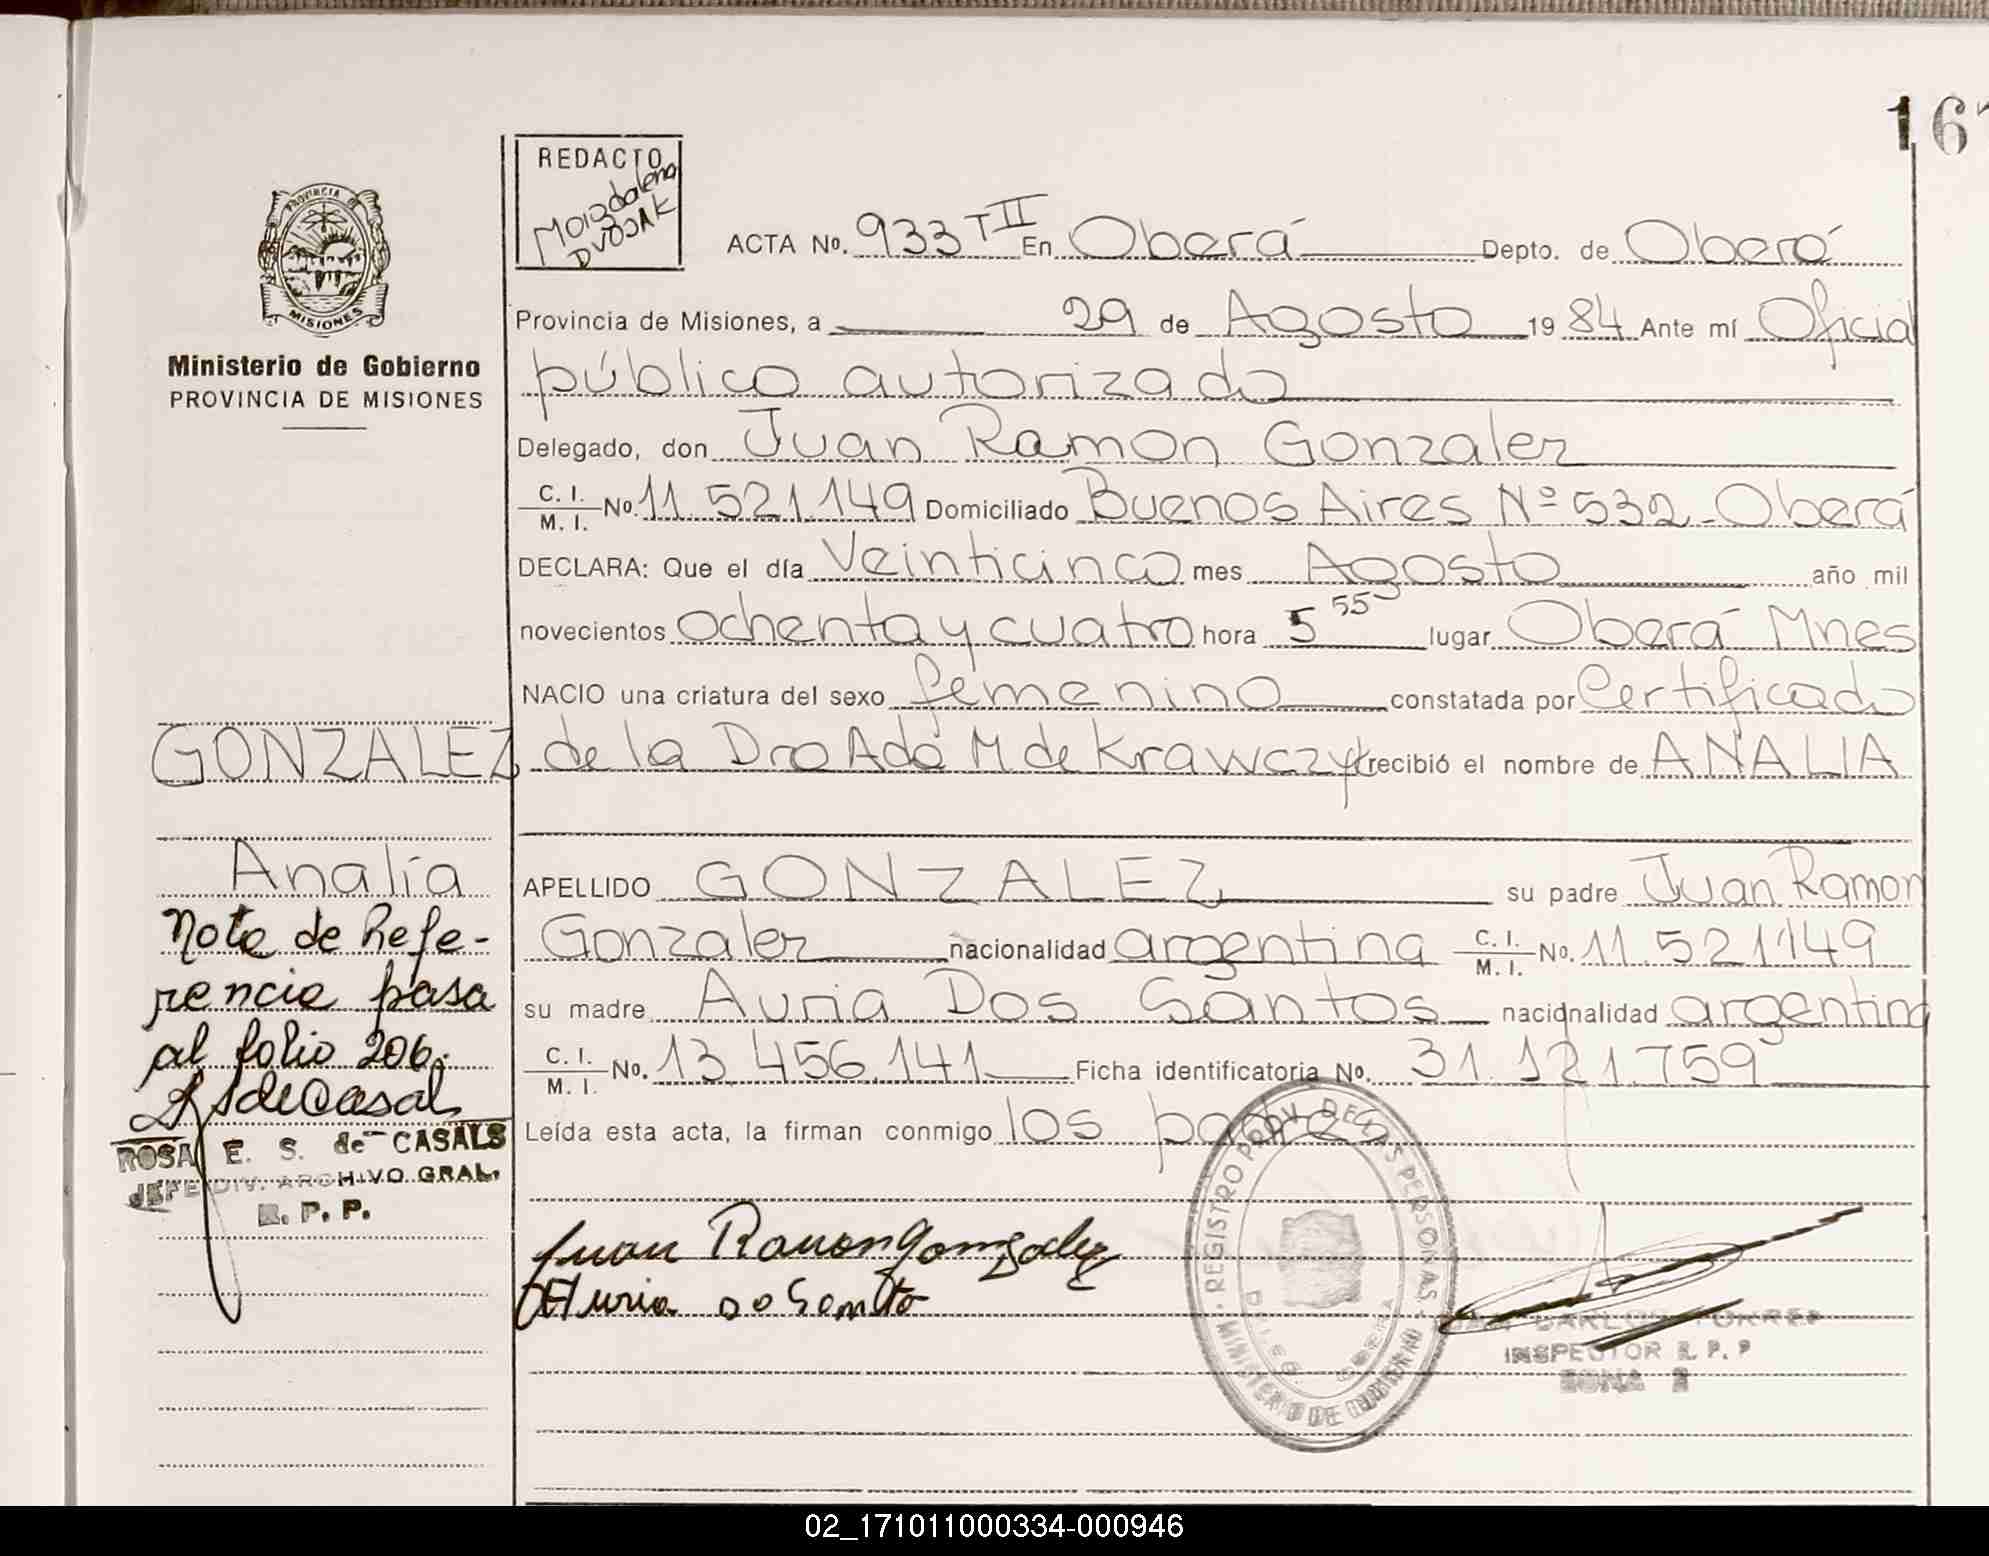 16
REDACTO
Magdalena
DVOJAK
PROVINCIA DE
MISIONES
Ministerio de Gobierno
PROVINCIA DE MISIONES
ACTA No. 933 T II En Oberá Depto. de Oberá
Provincia de Misiones, a 29 de Agosto 1984 Ante mí Oficial
público autorizado
Delegado, don Juan Ramon Gonzalez
C. I. / M. I. No. 11.521.149 Domiciliado Buenos Aires Nº 532 - Oberá
DECLARA: Que el día Veinticinco mes Agosto año mil
novecientos ochenta y cuatro hora 5 55 lugar Oberá Mnes
NACIO una criatura del sexo femenino constatada por Certificado
de la Dra Ada M de Krawczyk recibió el nombre de ANALIA
APELLIDO GONZALEZ su padre Juan Ramon
Gonzalez nacionalidad argentina C. I. / M. I. No. 11.521149
su madre Auria Dos Santos nacionalidad argentina
C. I. / M. I. No. 13.456.141 Ficha identificatoria No. 31.121.759
Leída esta acta, la firman conmigo los padres
GONZALEZ
Analía
Nota de Refe-
rencia pasa
al folio 206.
ROSA E. S. de CASALS
JEFE DIV. ARCHIVO GRAL.
R. P. P.
Juan Ramon Gonzalez
Auria Do Santo
REGISTRO PROV. DE LAS PERSONAS
MINISTERIO DE GOBIERNO
JUAN CARLOS TORRES
INSPECTOR R. P. P
ZONA 2
02_171011000334-000946